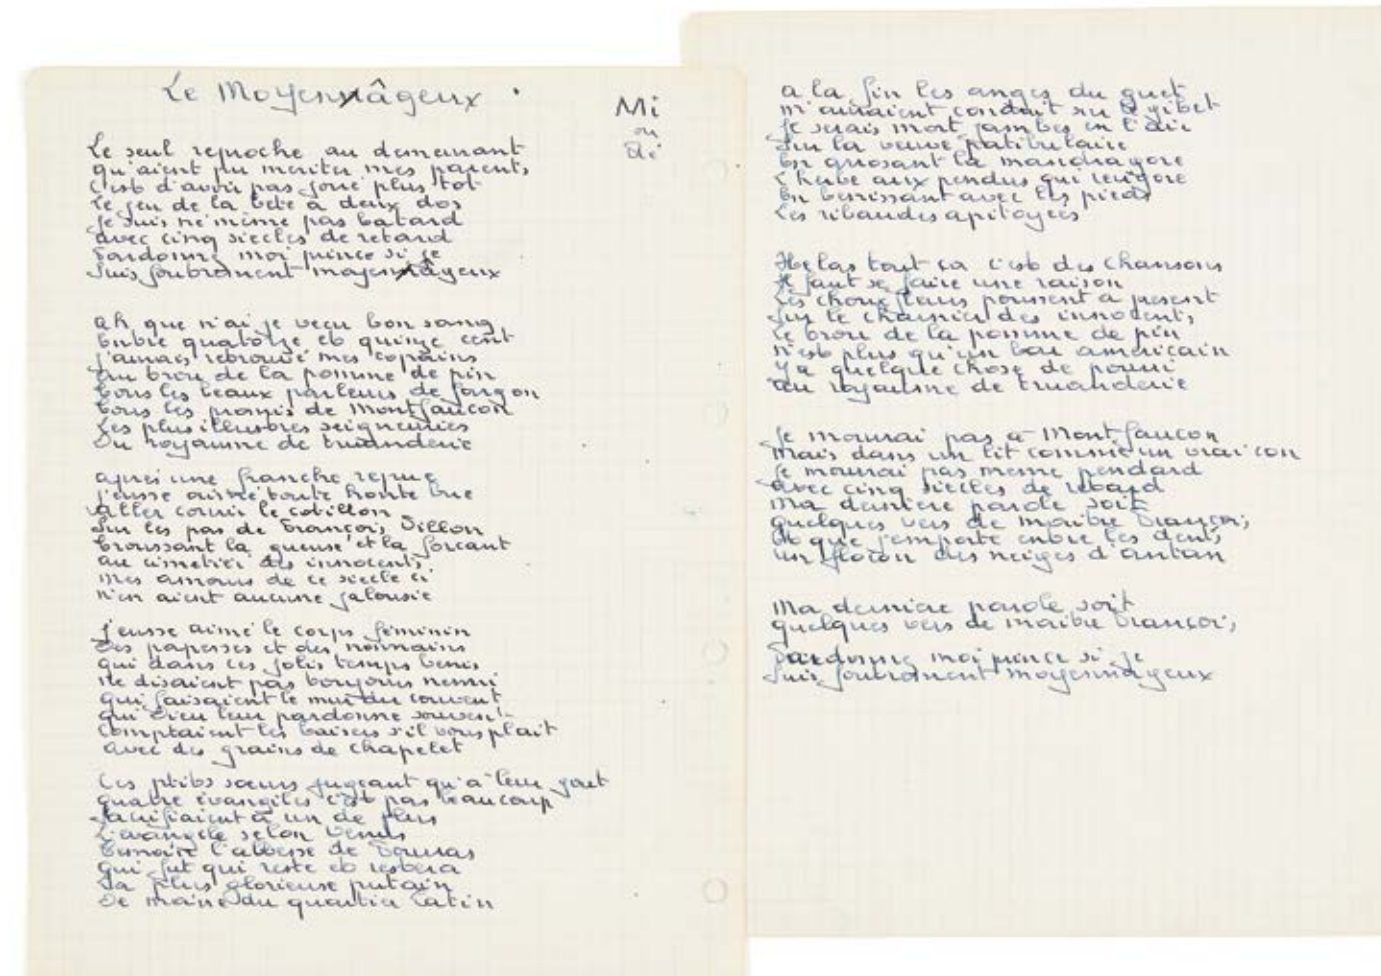 Le Moyenâgeux
Mi
ou
Ré
Le seul reproche au demeurant
qu'aient pu meriter mes parents
C'est d'avoir pas joué plus tot
Le jeu de la bete à deux dos
Je suis né même pas batard
avec cinq siecles de retard
Pardonnez moi prince si je
Suis foutrement moyenâgeux
ah que n'ai je vecu bon sang
Entre quatorze et quinze cent
J'amais retrouvé mes copains
Au trou de la pomme de pin
Tous les beaux parleurs de jargon
Tous les promis de Montfaucon
Les plus illustres seigneuries
Du royaume de truanderie
apres une franche repue
J'eusse aimé toute honte bue
aller courir le cotillon
Sur les pas de François Villon
Troussant la gueuse et la forçant
au cimetier des innocents
mes amours de ce siecle ci
n'en aient aucune jalousie
J'eusse aimé le corps feminin
Des papesses et des nonnains
qui dans ces jolis temps benis
Ne disaient pas toujours nenni
qui faisaient le mur du couvent
qui Dieu leur pardonne souvent
Comptaient les baisers s'il vous plait
avec des grains de chapelet
Ces ptits sœurs jugeant qu'à leur gout
quatre evangiles c'est pas beaucoup
Sacrifiaient à un de plus
L'evangile selon Venus
Temoire l'abbesse de Pourras
qui fut qui reste et restera
La plus glorieuse putain
De moine du quartier Latin
a la fin les anges du guet
m'auraient conduit sur le gibet
Je serais mort jambes en l'air
Sur la veuve patibulaire
En arrosant la mandragore
L'herbe aux pendus qui revigore
En benissant avec les pieds
Les ribaudes apitoyées
Helas tout ca c'est des chansons
Il faut se faire une raison
Les choux fleurs poussent a present
Sur le charnier des innocents
Le trou de la pomme de pin
n'est plus qu'un bar americain
Y a quelque chose de pourri
au royaume de truanderie
Je mourrai pas à Montfaucon
mais dans un lit comme un vrai con
Je mourrai pas meme pendard
avec cinq siecles de retard
ma derniere parole soit
quelques vers de maitre François
Et que j'emporte entre les dents
un flocon des neiges d'antan
Ma derniere parole soit
quelques vers de maitre François
Pardonnez moi prince si je
Suis foutrement moyennageux